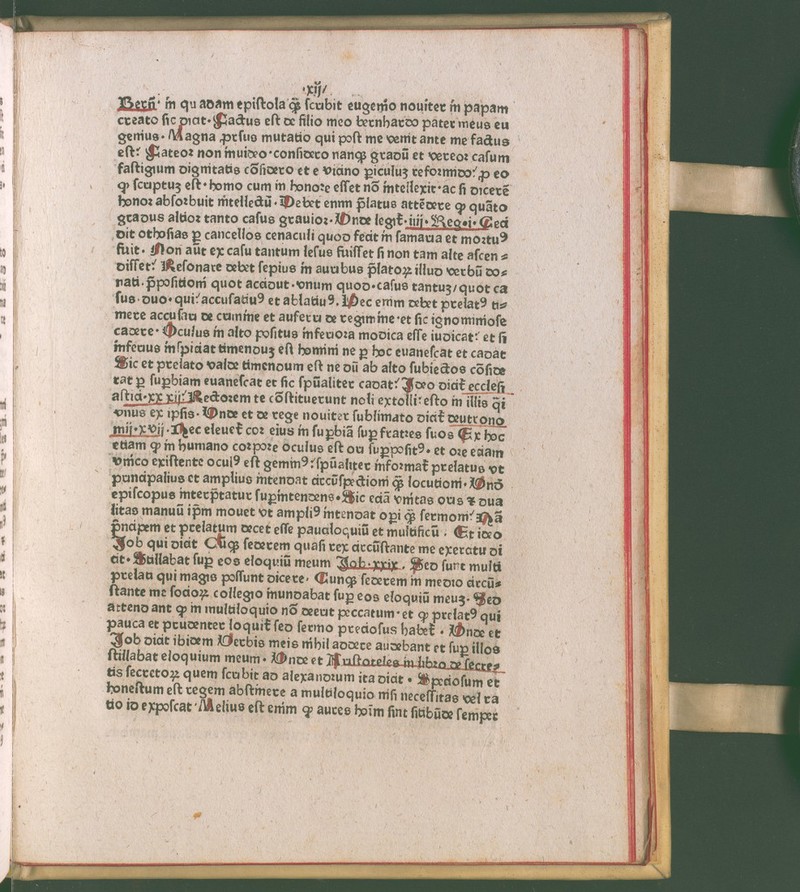 ·xij/
Berñ· in quadam epistola q̃ scribit eugenio nouiter in papam
creato sic dicit·Factus est de filio meo bernhardo pater meus eu
genius· Magna ꝓrsus mutatio qui post me venit ante me factus
est: Fateor non inuideo·considero nanqꝫ gradū et vereor casum
fastigium dignitatis cōsidero et e vicino ꝑiculuꝫ reformido: ꝓ eo
ꝙ scriptuꝫ est·homo cum in honore esset nō intellexit·ac si dicerē
honor absorbuit intellectū·Debet enim p̄latus attēdere ꝙ quāto
gradus altior tanto casus grauior·Unde legit̄·iiij·Reg·i·Ceci
dit othosias ꝑ cancellos cenaculi quod fecit in samaria et mortuꝰ
fuit· Non aūt ex casu tantum lesus fuisset si non tam alte ascen⸗
disset: Resonare debet sepius in auribus p̄latoꝝ illud verbū do⸗
nati·p̄positioni quot accidūt·vnum quod·casus tantuꝫ/quot ca
sus·duo·qui:accusatiuꝰ et ablatiuꝰ. Hec enim debet prelatꝰ ti⸗
mere accusari de crimine et auferri de regimine·et sic ignominiose
cadere· Oculus in alto positus inferiora modica esse iudicat: et si
inferius inspiciat timenduꝫ est homini ne ꝑ hoc euanescat et cadat
Sic et prelato valde timendum est ne dū ab alto subiectos cōside
rat ꝑ suꝑbiam euanescat et sic spūaliter cadat: Ideo dicit̄ ecclesi
astici·xxxij:Rectorem te cōstituerunt noli extolli:esto in illis q̄i
vnus ex ipsis·Unde et de rege nouiter sublimato dicit̄ deutrono
mij·xvij·Nec eleuet̄ cor eius in suꝑbiā suꝑ fratres suos Ex hoc
etiam ꝙ in humano corpore oculus est ori suꝑpositꝰ· et ore etiam
vnico existente oculꝰ est geminꝰ:spūaliter informat̄ prelatus vt
principalius et amplius intendat circūspectioni q̄ꝫ locutioni·Unō
episcopus interp̄tatur suꝑintendens·Sic eciā vnitas oris ⁊ dua
litas manuū ipm̄ mouet vt ampliꝰ intendat oꝑi q̄ꝫ sermoni: Nā
p̄ncipem et prelatum decet esse pauciloquiū et multificū · Et ideo
Job qui dicit Cūqꝫ sederem quasi rex circūstante me exercitu di
cit·Stillabat suꝑ eos eloquiū meum Job·xxix. Sed sunt multi
prelati qui magis possunt dicere· Cunqꝫ sederem in medio circū⸗
stante me socioꝝ collegio inundabat suꝑ eos eloquiū meuꝫ·Sed
attendant ꝙ in multiloquio nō deerit peccatum·et ꝙ prelatꝰ qui
pauca et prudenter loquit̄ sed sermo preciosus habet̄ · Unde et
Job dicit ibidem Verbis meis nihil addere audebant et suꝑ illos
stillabat eloquium meum· Unde et Aristoteles in libro de secre⸗
tis secretoꝝ quem scribit ad alexandrum ita dicit · Speciosum et
honestum est regem abstinere a multiloquio nisi necessitas vel ra
tio id exposcat·Melius est enim ꝙ aures hoīm sint sitibūde semper